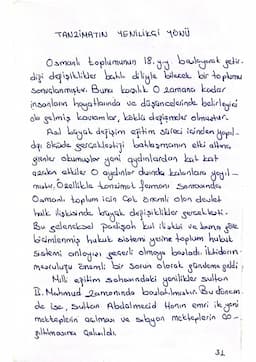 TANZİMATIN YENİLİKÇİ YÖNÜ
Osmanlı toplumunun 18.yy başlayarak getir-
diği değişiklikler batılı diliyle bilecek bir toplumu
sonuçlanmıştır. Buna karşılık O zamana kadar
insanların hayatlarında ve düşüncelerinde belirleyici
ola gelmiş kavramlar, köklü değişmeler olmuştur.
Asıl büyük değişim eğitim süreci içinden yapıl-
dığı ölçüde gerçekleştiği batılaşmanın etki altına
girenler okumuşlar yeni aydınlardan kat kat
azınka ettiler O aydınlar dışında kalanlara yayıl-
mıştır. Özellikle tanzimat fermanı sonrasında
Osmanlı toplum için çok önemli olan devlet
halk ilişkisinde büyük değişiklikler gerçekleşti.
Bu geleneksel padişah kul ilişkisi ve buna göre
biçimlenmiş hukuk sistemi yerine toplum hukuk
sistemi anlayışı geçerli olmaya başladı. İktidarın
meşruluğu önemli bir sorun olarak gündeme geldi.
Milli eğitim sahasındaki yenilikler sultan
II. Mahmud zamanında başlatılmıştır. Bu dönem
de ise, sultan Abdülmecid Hanın emri ile yeni
mekteplerin açılması ve sıbyan mekteplerin ço-
ğaltılmasına çalışıldı.
31